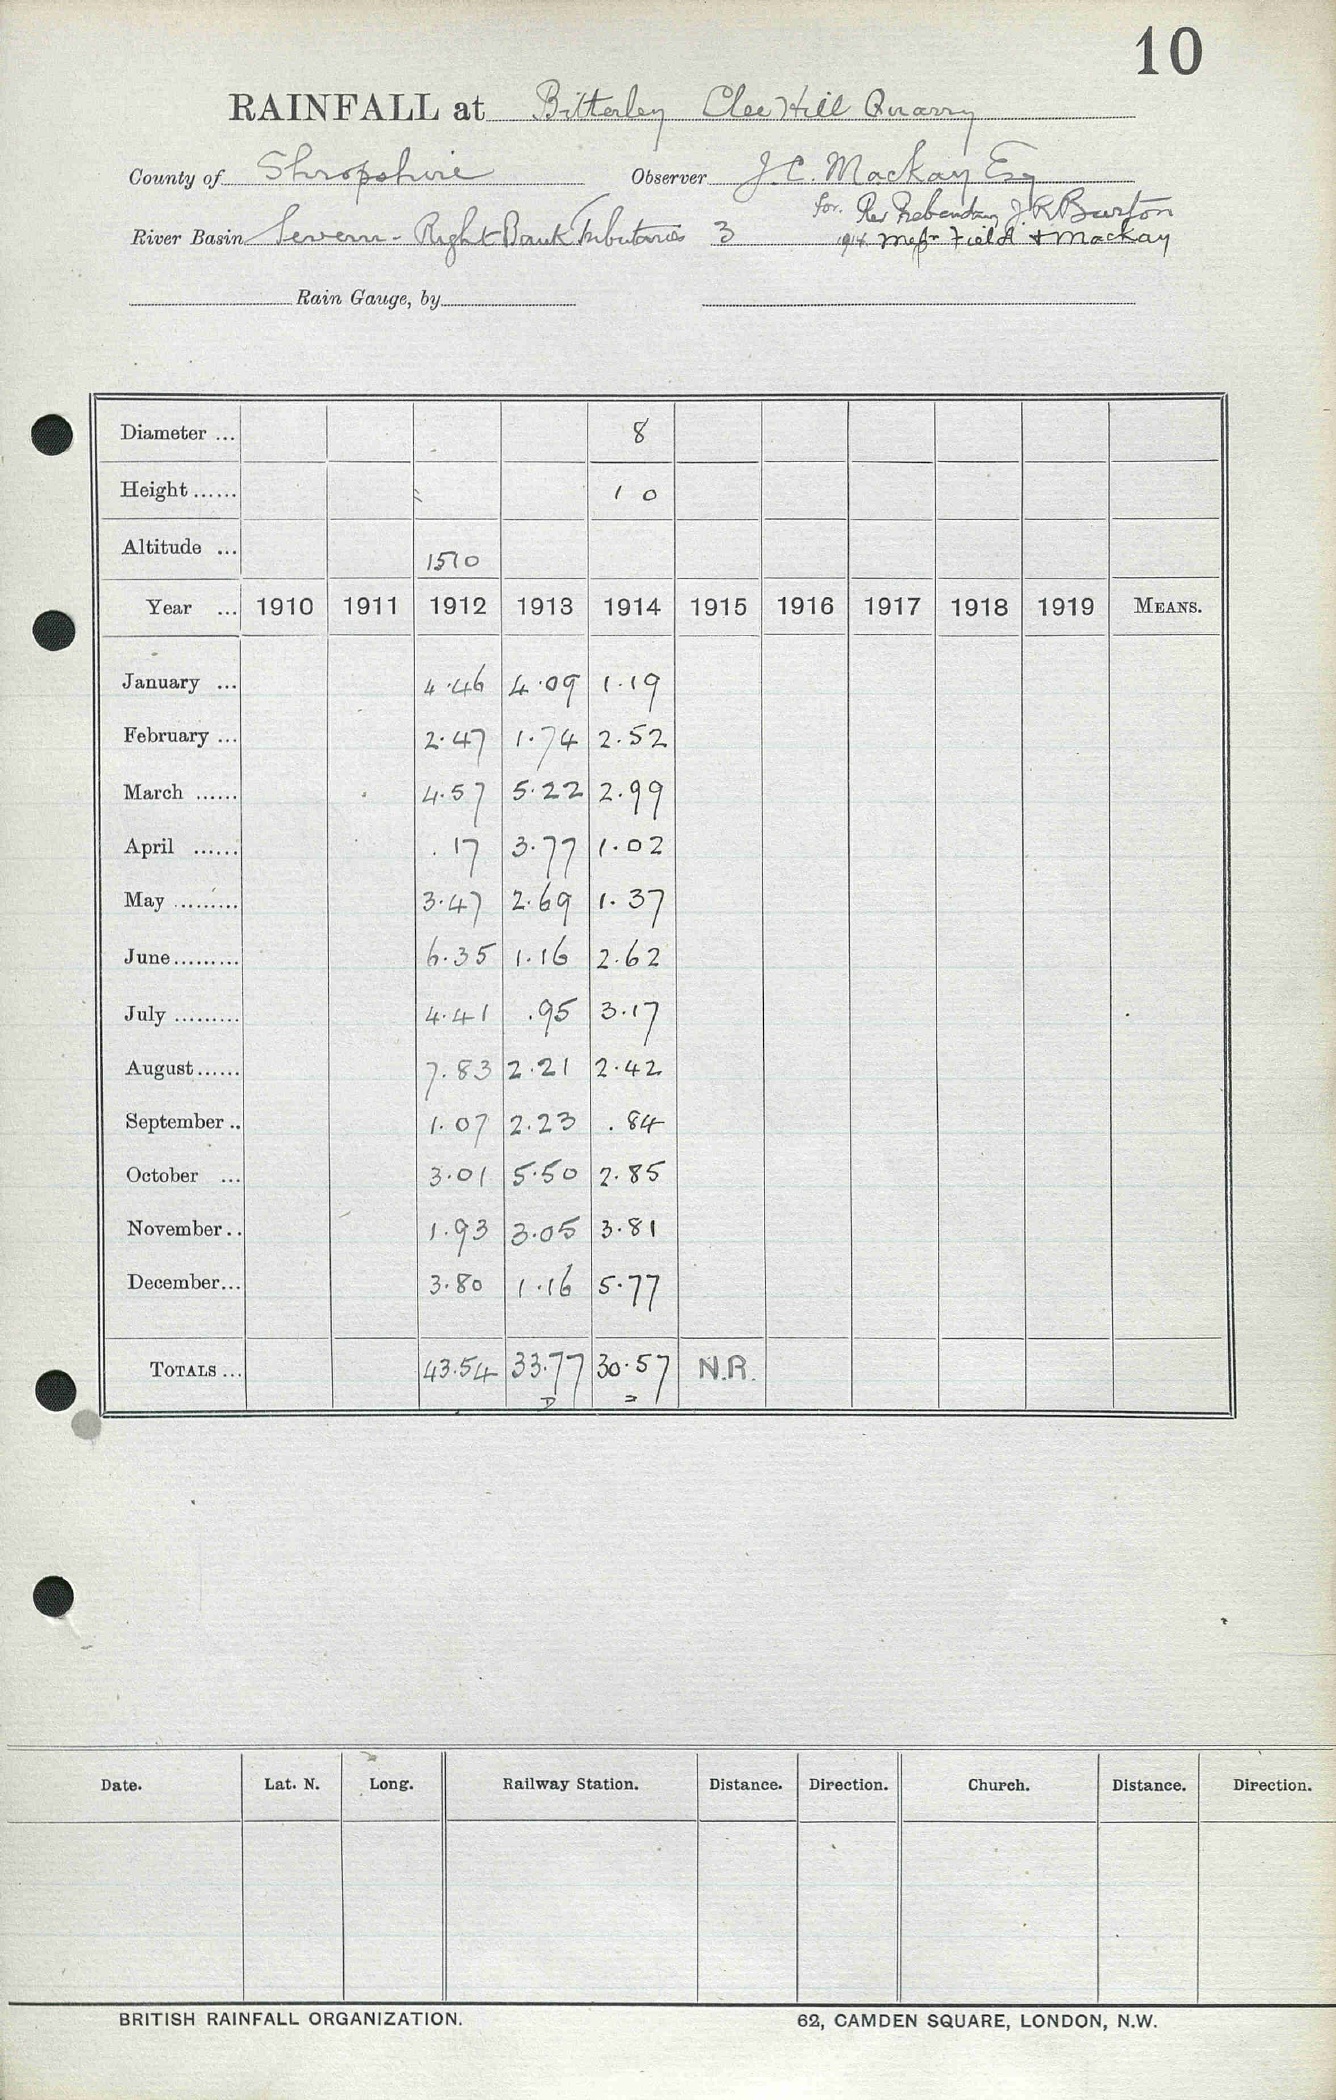 10
RAINFALL at Bitterley Clee Hill Quarry
County of Shropshire Observer J. C. Mackay Esq
for. Rev Prebendary J R Burton
River Basin Severn - Right Bank Tributaries 3 1914 Messrs Field & Mackay
Rain Gauge, by
Diameter ... 8
Height ...... 1 0
Altitude ... 1510
Year ... 1910 1911 1912 1913 1914 1915 1916 1917 1918 1919 MEANS.
January ... 4.46 4.09 1.19
February ... 2.47 1.74 2.52
March ...... 4.57 5.22 2.99
April ...... .17 3.77 1.02
May ......... 3.47 2.69 1.37
June ......... 6.35 1.16 2.62
July ......... 4.41 .95 3.17
August ...... 7.83 2.21 2.42
September .. 1.07 2.23 .84
October ... 3.01 5.50 2.85
November .. 1.93 3.05 3.81
December ... 3.80 1.16 5.77
TOTALS ... 43.54 33.77 30.57 N.R.
Date. Lat. N. Long. Railway Station. Distance. Direction. Church. Distance. Direction.
BRITISH RAINFALL ORGANIZATION. 62, CAMDEN SQUARE, LONDON, N.W.